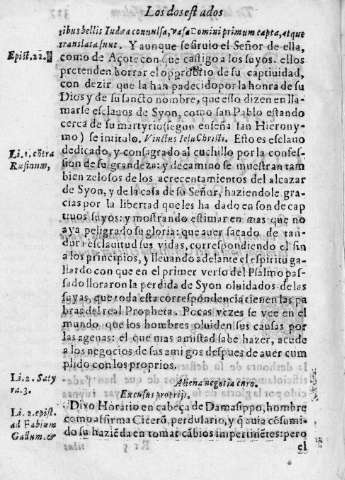 Los dos estados
ribus bellis Iudæa conuulsa, vasa Domini primum capta, atque
translata sunt. Y aunque se siruio el Señor de ella,
Epist. 22.
como de Açote con que castigo a los suyos. ellos
pretenden borrar el opprobrio de su captiuidad,
con dezir que la han padecido por la honra de su
Dios y de su sancto nombre, que esso dizen en lla-
marse esclauos de Syon, como san Pablo estando
cerca de su martyrio (segun enseña san Hierony-
mo) se intitulo. Vinctus Iesu Christi. Esto es esclauo
Li. 1. cõtra
Rufianum,
dedicado, y consagrado al cuchillo por la confes-
sion de su grandeza: y de camino se muestran tam
bien zelosos de los acrecentamientos del alcazar
de Syon, y de la casa de su Señor, haziendole gra-
cias por la libertad que les ha dado en son de cap
tiuos suyos: y mostrando estimar en mas que no
aya peligrado su gloria: que auer sacado de tan
dura esclauitud sus vidas, correspondiendo el fin
a los principios, y lleuando adelante el espiritu ga-
llardo con que en el primer verso del Psalmo pas-
sado lloraron la perdida de Syon oluidados de las
suyas, que toda esta correspondencia tienen las pa
bras del real Propheta. Pocas vezes se vee en el
mundo que los hombres oluiden sus causas por
las agenas: el que mas amistad sabe hazer, acude
a los negocios de sus amigos despues de auer cum
plido con los proprios.
Li. 2. Saty
ra. 3.
Aliena negotia curo.
Excussus proprijs.
Li. 2. epist.
ad Fabium
Gallum. &
Dixo Horatio en cabeça de Damasippo, hombre
como affirma Cicerõ, perdulario, y q̃ auia cõsumi-
do su haziẽda en tomar cãbios impertinẽtes: pero
el